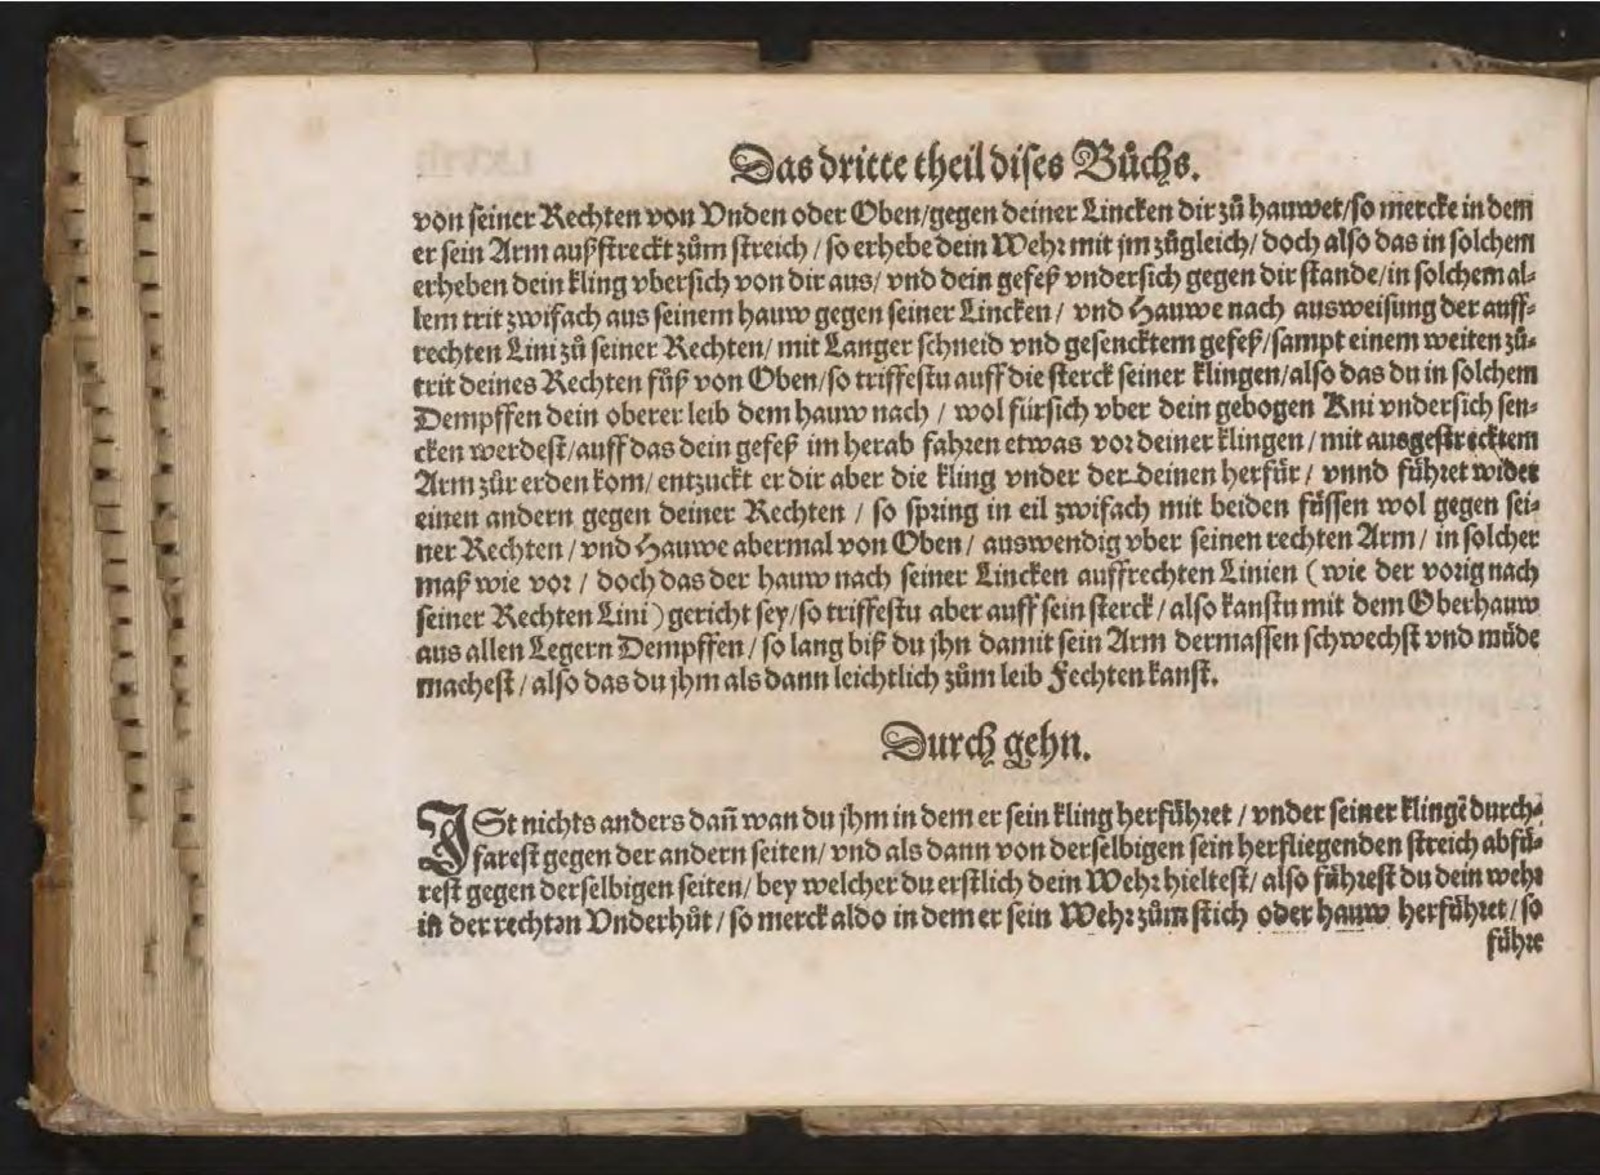 Das dritte theil dises Bůchs.
von seiner Rechten von Vnden oder Oben/gegen deiner Lincken dir zů hauwet/so mercke in dem
er sein Arm außstreckt zům streich / so erhebe dein Wehr mit jm zůgleich/ doch also das in solchem
erheben dein kling vbersich von dir aus/ vnd dein gefeß vndersich gegen dir stande/in solchem al⸗
lem trit zwifach aus seinem hauw gegen seiner Lincken / vnd Hauwe nach ausweisung der auff⸗
rechten Lini zů seiner Rechten/ mit Langer schneid vnd gesencktem gefeß/sampt einem weiten zů⸗
trit deines Rechten fůß von Oben/so triffestu auff die sterck seiner klingen/also das du in solchem
Dempffen dein oberer leib dem hauw nach / wol fürsich vber dein gebogen Kni vndersich sen⸗
cken werdest/auff das dein gefeß im herab fahren etwas vor deiner klingen / mit ausgestrecktem
Arm zůr erden kom/ entzuckt er dir aber die kling vnder der deinen herfür / vnnd führet wider
einen andern gegen deiner Rechten / so spring in eil zwifach mit beiden füssen wol gegen sei⸗
ner Rechten / vnd Hauwe abermal von Oben / auswendig vber seinen rechten Arm / in solcher
maß wie vor / doch das der hauw nach seiner Lincken auffrechten Linien (wie der vorig nach
seiner Rechten Lini) gericht sey/so triffestu aber auff sein sterck / also kanstu mit dem Oberhauw
aus allen Legern Dempffen / so lang biß du jhn damit sein Arm dermassen schwechst vnd müde
machest / also das du jhm als dann leichtlich zům leib Fechten kanst.
Durch gehn.
ISt nichts anders dañ wan du jhm in dem er sein kling herführet / vnder seiner klingẽ durch⸗
farest gegen der andern seiten/ vnd als dann von derselbigen sein herfliegenden streich abfü⸗
rest gegen derselbigen seiten/ bey welcher du erstlich dein Wehr hieltest/ also führest du dein wehr
in der rechten Vnderhůt / so merck aldo in dem er sein Wehr zům stich oder hauw herführet / so
führe